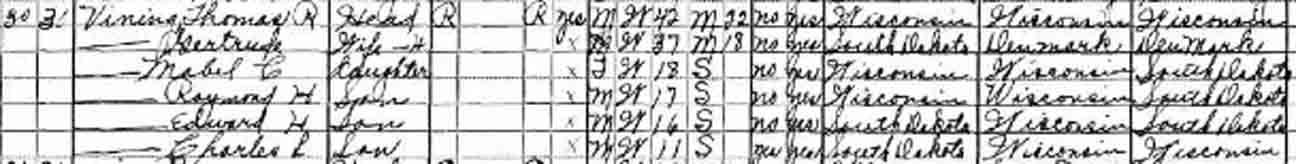 30 31 Vining Thomas R Head R R yes M W 42 M 22 no yes Wisconsin Wisconsin Wisconsin
Gertrude Wife-H x M W 37 M 18 no yes South Dakota Denmark DenMark
Mabel C Daughter x F W 18 S no yes Wisconsin Wisconsin South Dakota
Raymond H Son x M W 17 S no yes Wisconsin Wisconsin South Dakota
Edward H Son x M W 16 S no yes South Dakota Wisconsin South Dakota
Charles L Son x M W 11 S yes yes South Dakota Wisconsin Wisconsin